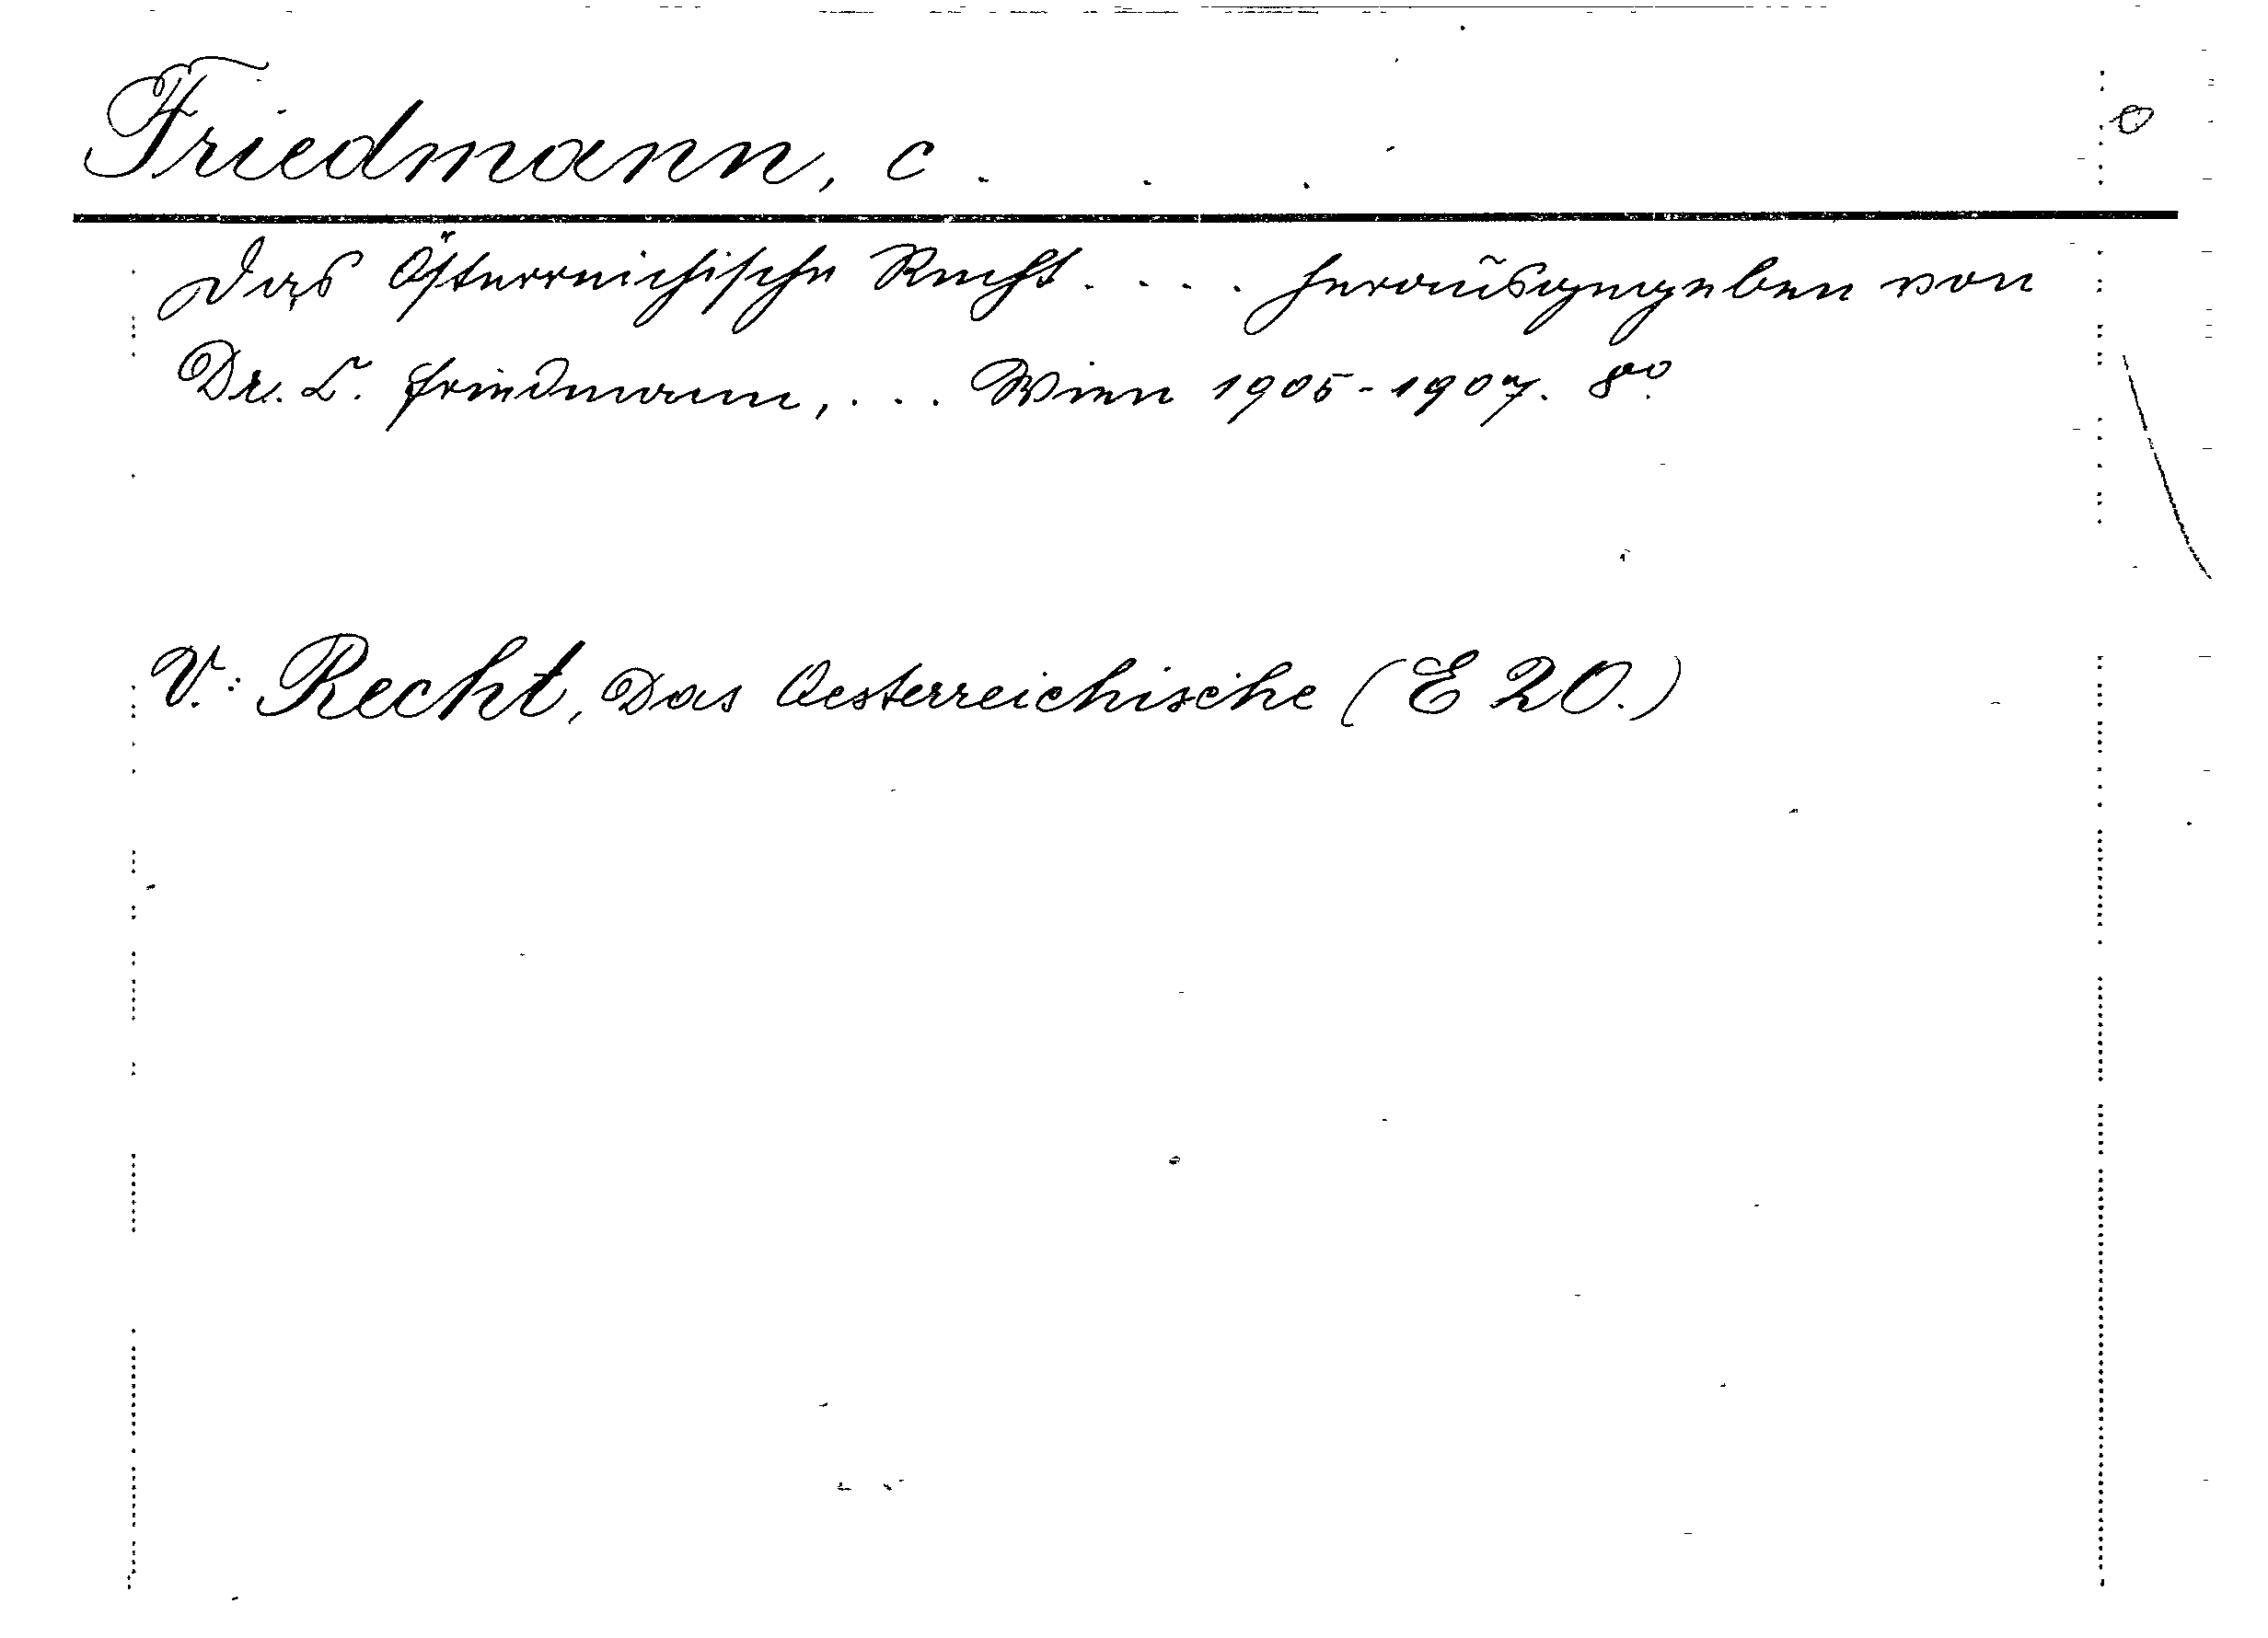 Friedmann, C. . .
Das Österreichische Recht. . . . herausgegeben von
Dr. C. Friedmann, . . . Wien 1905-1907. 8vo.
V.: Recht, Das Oesterreichische (E 20.)